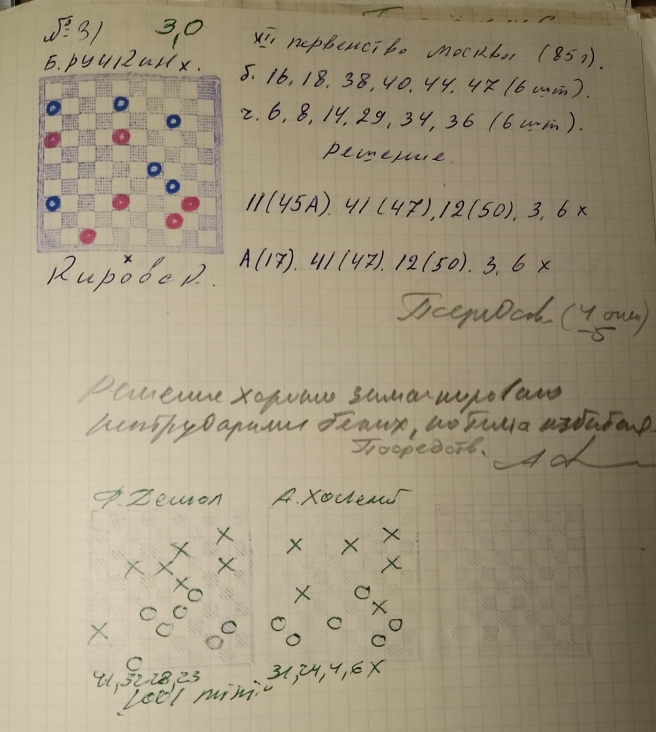 № 31 3,0
Б. Рушкин х.
Кировск.
XII первенство Москвы (85 г).
б. 16, 18, 38, 40, 44, 47 (6 шт).
ч. 6, 8, 14, 29, 34, 36 (6 шт).
Решение.
11 (45А). 41 (47), 12 (50), 3, 6 х
А (17). 41 (47). 12 (50). 3, 6 х
Решение хорошо замаскировано
белых, но тема избитая
Посредств.
А. Хослемб
41, 32 28, 23
mini
31, 24, 4, 6 X